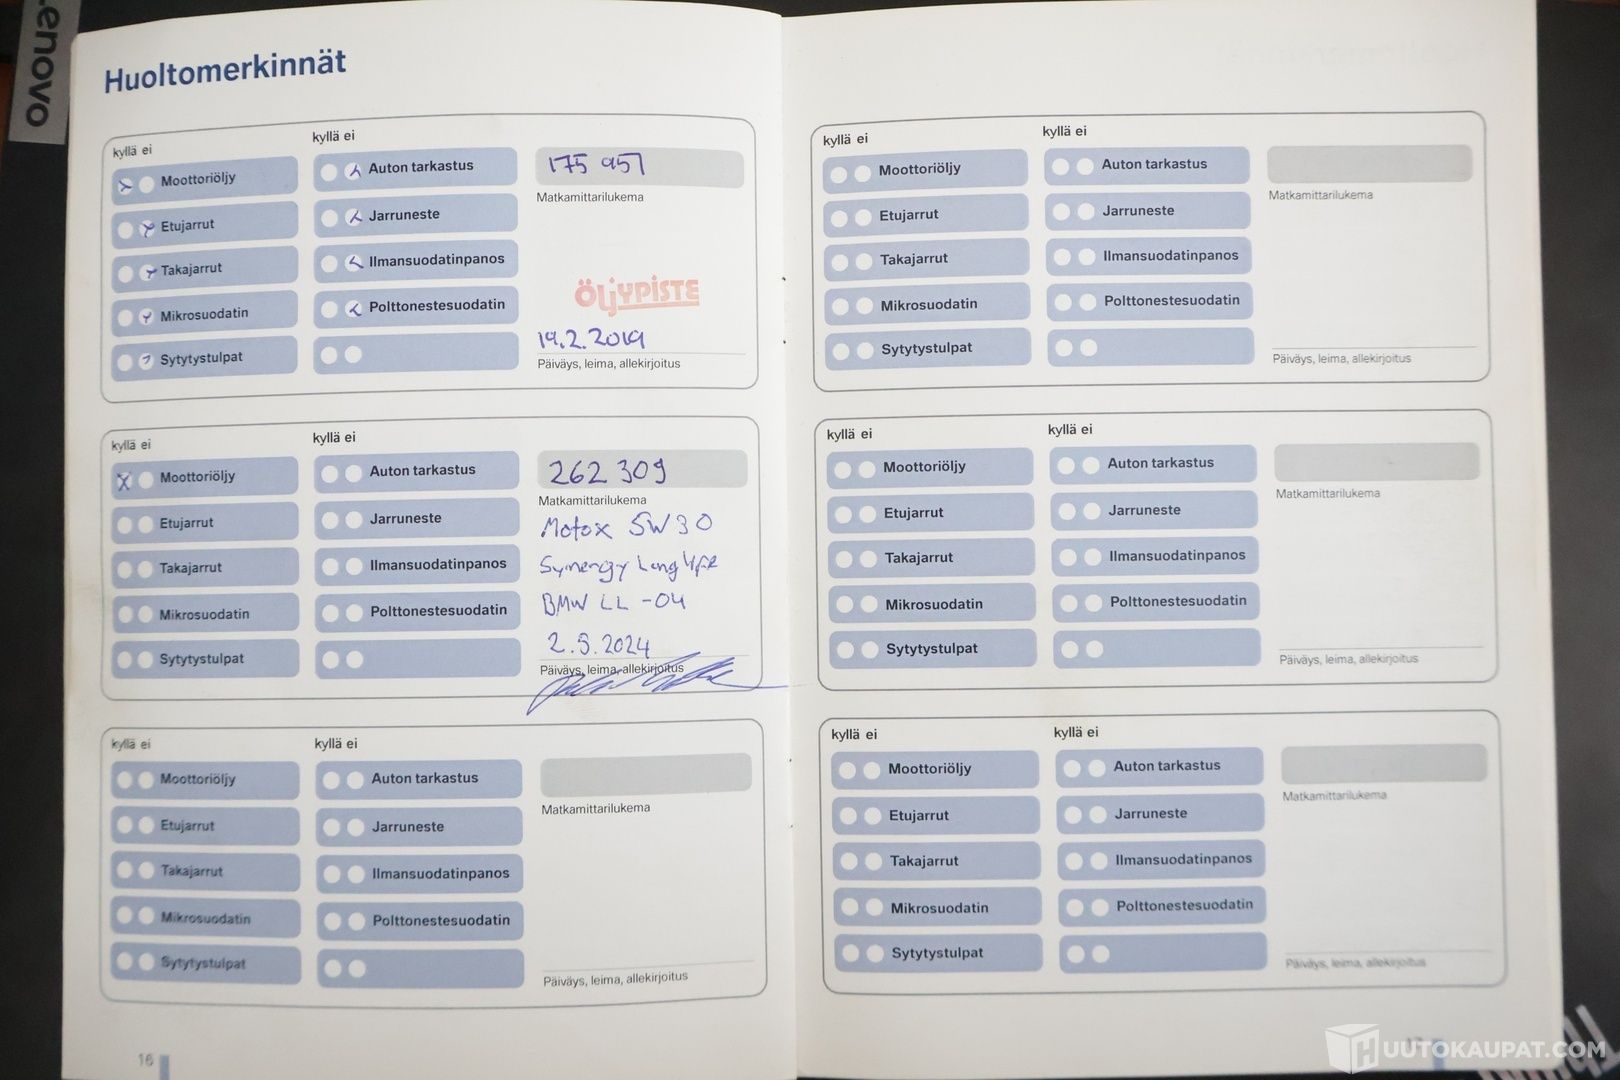 enovo
Huoltomerkinnät
kyllä ei
kyllä ei
Moottoriöljy
Auton tarkastus
175 957
Matkamittarilukema
Etujarrut
Jarruneste
Takajarrut
Ilmansuodatinpanos
Mikrosuodatin
Polttonestesuodatin
ÖLJYPISTE
Sytytystulpat
19.2.2019
Päiväys, leima, allekirjoitus
kyllä ei
kyllä ei
Moottoriöljy
Auton tarkastus
262 309
Matkamittarilukema
Etujarrut
Jarruneste
Motox 5W30
Takajarrut
Ilmansuodatinpanos
Synergy Longlife
Mikrosuodatin
Polttonestesuodatin
BMW LL-04
Sytytystulpat
2.5.2024
Päiväys, leima, allekirjoitus
kyllä ei
kyllä ei
Moottoriöljy
Auton tarkastus
Matkamittarilukema
Etujarrut
Jarruneste
Takajarrut
Ilmansuodatinpanos
Mikrosuodatin
Polttonestesuodatin
Sytytystulpat
Päiväys, leima, allekirjoitus
16
kyllä ei
kyllä ei
Moottoriöljy
Auton tarkastus
Matkamittarilukema
Etujarrut
Jarruneste
Takajarrut
Ilmansuodatinpanos
Mikrosuodatin
Polttonestesuodatin
Sytytystulpat
Päiväys, leima, allekirjoitus
kyllä ei
kyllä ei
Moottoriöljy
Auton tarkastus
Matkamittarilukema
Etujarrut
Jarruneste
Takajarrut
Ilmansuodatinpanos
Mikrosuodatin
Polttonestesuodatin
Sytytystulpat
Päiväys, leima, allekirjoitus
kyllä ei
kyllä ei
Moottoriöljy
Auton tarkastus
Matkamittarilukema
Etujarrut
Jarruneste
Takajarrut
Ilmansuodatinpanos
Mikrosuodatin
Polttonestesuodatin
Sytytystulpat
Päiväys, leima, allekirjoitus
HUUTOKAUPAT.COM